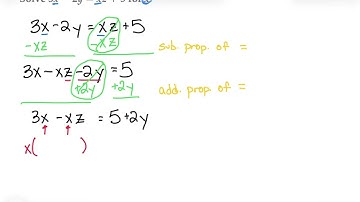 3x - 2y = xz + 5
-xz -xz sub. prop. of =
3x - xz - 2y = 5
+2y +2y add. prop. of =
3x - xz = 5 + 2y
x( )